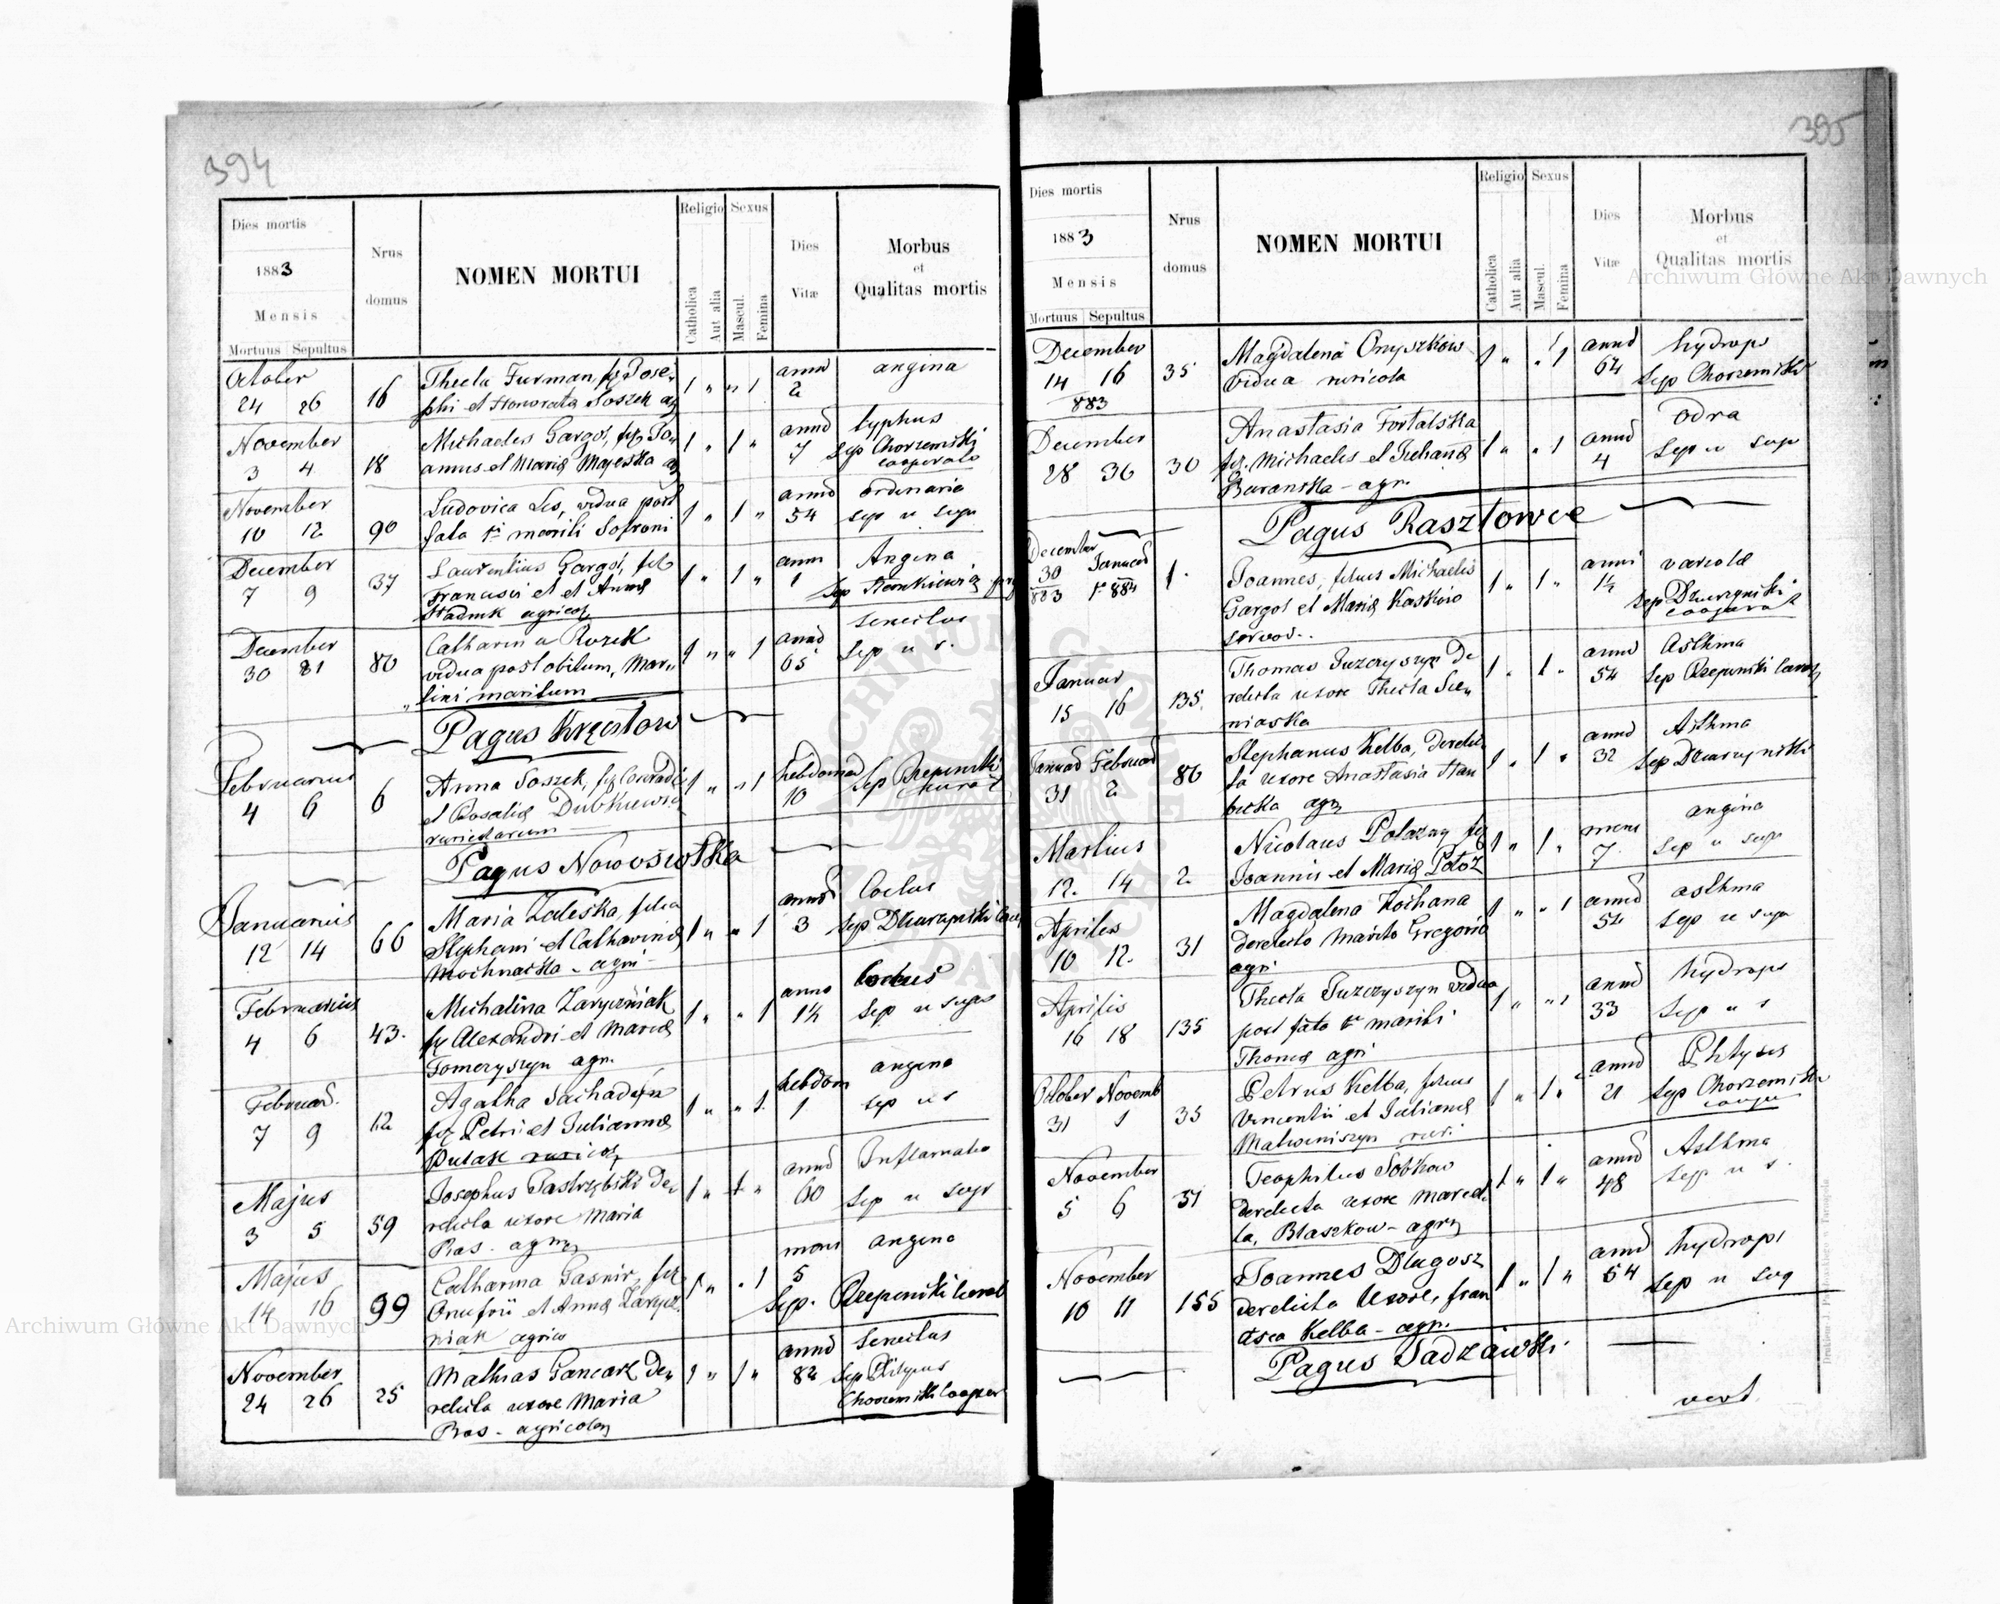 394
Dies mortis
1883
Mensis
Mortuus Sepultus
Nrus
domus
NOMEN MORTUI
Religio
Catholica
Aut alia
Sexus
Mascul.
Femina
Dies
Vitæ
Morbus
et
Qualitas mortis
October
24 26 16
Thecla Furman, fil. Jose-
phi et Honorata Soszek
1 " " 1
annd
2
angina
November
3 4 18
Michaelis Gargol,
et Maria Majeska
1 " 1 "
annd
7
typhus
Sep Chorzemski
cooperato
November
10 12 90
Ludovica Les, vidua post
fata mariti Sofroni
1 " 1 "
annd
54
ordinaria
Sep u supr
December
7 9 37
Laurentius Gargol, fil
Francisci et et Anna
Stadnik agricol
1 " 1 "
ann
1
Angina
Sep
December
30 31 80
Catharina Rozek
vidua post obitum, Mar-
tini maritum
1 " " 1
annd
65
Senectus
Sep u s.
Pagus Kręntow
Februarius
4 6 6
Anna Soszek, fil Conradi
et Rosalia Dubkiewicz
ruricolarum
1 " " 1
hebdomad
10
Sep Rzepinski
Curat
Pagus Nowosiołka
Januarius
12 14 66
Maria Zaleska, filia
Stephani et Catharina
Mochnacka - agri
1 " " 1
annd
3
Coclus
Februarius
4 6 43.
Michalina Zaryczniak
fil Alexandri et Maria
Tomczyszyn agr.
1 " " 1
anno
1½
Coclus
Sep u supr
Februar.
7 9 12
Agatha Sachadyn
fil Petri et Julianna
Pulak ruricol
1 " " 1
hebdom
1
angina
sep u s
Majus
3 5 59
Josephus Jastrzębski de-
relicta uxore Maria
Pras. agr
1 " 1 "
annd
60
Inflamatio
Sep u supr
Majus
14 16 99
Catharina Gasnir, fil
Onufrii et Anna Zarycz-
niak agrico
1 " " 1
mens
5
angina
Sep. Rzepinski Curat
November
24 26 25
Mathias Gancarz de-
relicta uxore Maria
Pras - agricola
1 " 1 "
annd
82
Senectus
Sep Philipus
Chorzemski Cooper
395
Dies mortis
1883
Mensis
Mortuus Sepultus
Nrus
domus
NOMEN MORTUI
Religio
Catholica
Aut alia
Sexus
Mascul.
Femina
Dies
Vitæ
Morbus
et
Qualitas mortis
December
14 16 35
883
Magdalena Onyszkow
vidua ruricola
1 " " 1
annd
64
hydrops
Sep Chorzemski
December
28 30 30
Anastasia Fortalska
fil. Michaelis et Juliana
Baranska - agr.
1 " " 1
annd
4
Odra
Sep u supr
Pagus Rasztowce
December Januar
30 1 1.
883 884
Joannes, filius Michaelis
Gargol et Maria Kaskow
servos.
1 " 1 "
anni
1½
variola
Sep Dzurzynski
cooperat
Januar
15 16 135.
Thomas Juzczyszyn de-
relicta uxore Thecla Sie-
niaska
1 " 1 "
annd
54
Asthma
Sep Rzepinski
Januar Februar
31 2 80
Stephanus Kelba, derelic-
ta uxore Anastasia Han-
bicka agr
1 " 1 "
annd
32
Asthma
Sep Dzurzynski
Martius
12. 14 2
Nicolaus Polazny fil
Joannis et Maria
1 " 1 "
mens
7
angina
Sep u supr
Aprilis
10 12. 31
Magdalena Kochana
derelicto marito Gregorio
agr
1 " " 1
annd
54
asthma
Sep u supr
Aprilis
16 18 135
Thecla Juzczyszyn vidua
post fata mariti
Thoma agri
1 " " 1
annd
33
hydrops
Sep u s
October Novemb
31 1 35
Petrus Kelba, filius
Vincentii et Juliana
Matwiniszyn ruri
1 " 1 "
annd
21
Phtysis
Sep Chorzemski
cooper
November
5 6 51
Teophilus Sobkow
derelicta uxore Marcel-
la, Blaszkow - agr
1 " 1 "
annd
48
Asthma
Sep u s.
November
10 11 155
Joannes Dlugosz
derelicta uxore, fran
cisca Kelba - agr.
1 " 1 "
annd
54
hydrops
sep u sup
Pagus Sadzawki.
vert
Archiwum Główne Akt Dawnych
Archiwum Główne Akt Dawnych
ARCHIWUM GŁÓWNE AKT DAWNYCH